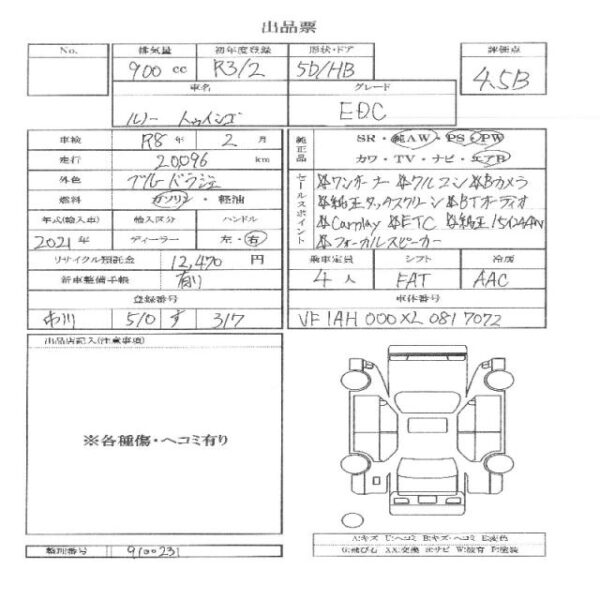 出品票
No. 排気量 初年度登録 形状・ドア 評価点
900 cc R3/2 5D/HB 4.5B
車名 グレード
ルノー トゥインゴ EDC
車検 R8 年 2 月
走行 20,096 km
外色 ブルードラジェ
燃料 ガソリン・軽油
年式(輸入車) 輸入区分 ハンドル
2021 年 ディーラー 左・右
リサイクル預託金 12,470 円
新車整備手帳 有り
登録番号
市川 510 す 317
純正品 SR・純AW・PS・PW
カワ・TV・ナビ・エアB
セールスポイント
※ワンオーナー ※クルコン ※Bカメラ
※純正タッチスクリーン ※BTオーディオ
※Carplay ※ETC ※純正15インチAW
※フォーカルスピーカー
乗車定員 シフト 冷房
4 人 FAT AAC
車体番号
VF1AH000XL0817072
出品店記入(注意事項)
※各種傷・ヘコミ有り
A:キズ U:ヘコミ B:キズ・ヘコミ E:変色
G:飛び石 XX:交換 S:サビ W:波有 P:塗装
類別番号 9100231